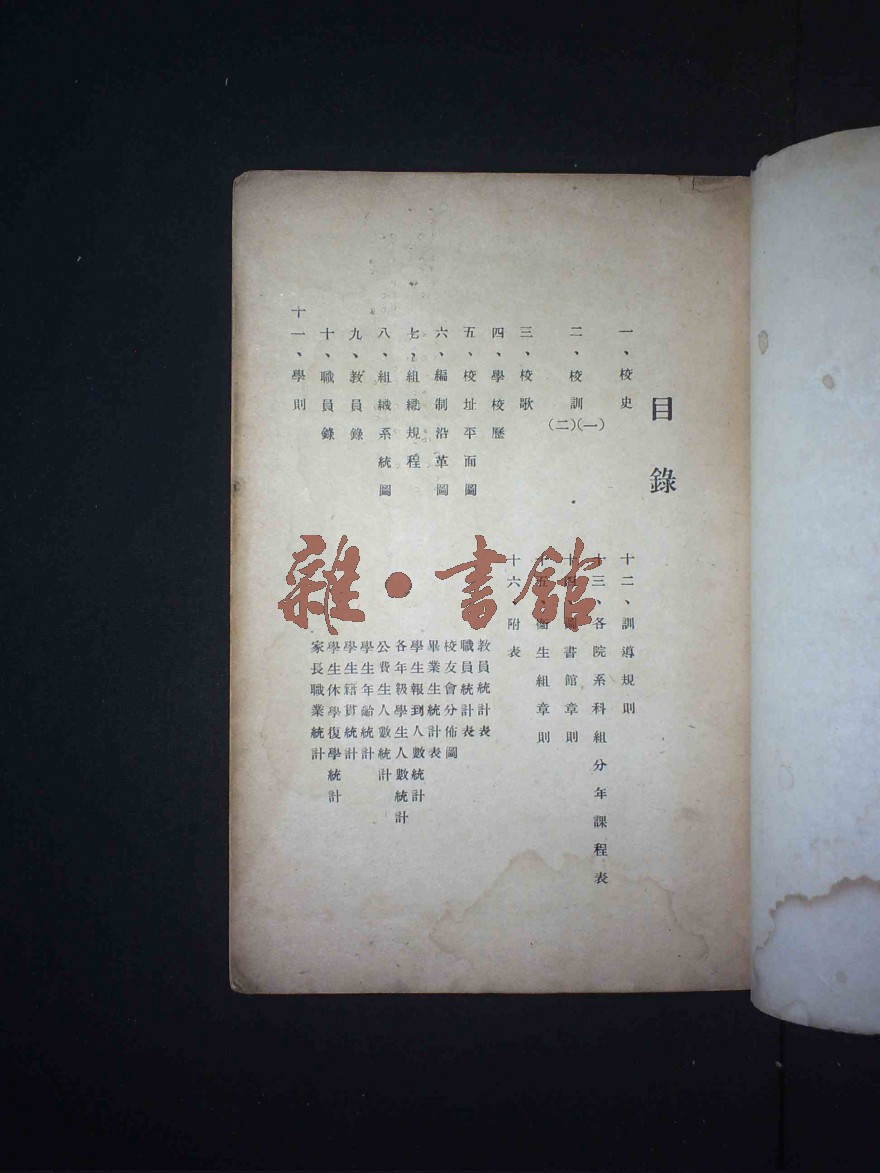 目錄
一、校史
二、校訓(一)(二)
三、校歌
四、學校歷
五、校址平面圖
六、編制沿革圖
七、組織規程
八、組織系統圖
九、教員錄
十、職員錄
十一、學則
十二、訓導規則
十三、各院系科組分年課程表
十四、圖書館章則
十五、衛生組章則
十六、附表
教員統計表
職員統計表
校友會分佈圖
畢業生統計表
學生報到人數統計
各年級學生人數統計
公費生人數統計
學生年齡統計
學生籍貫統計
學生休學復學統計
家長職業統計
雜·書館